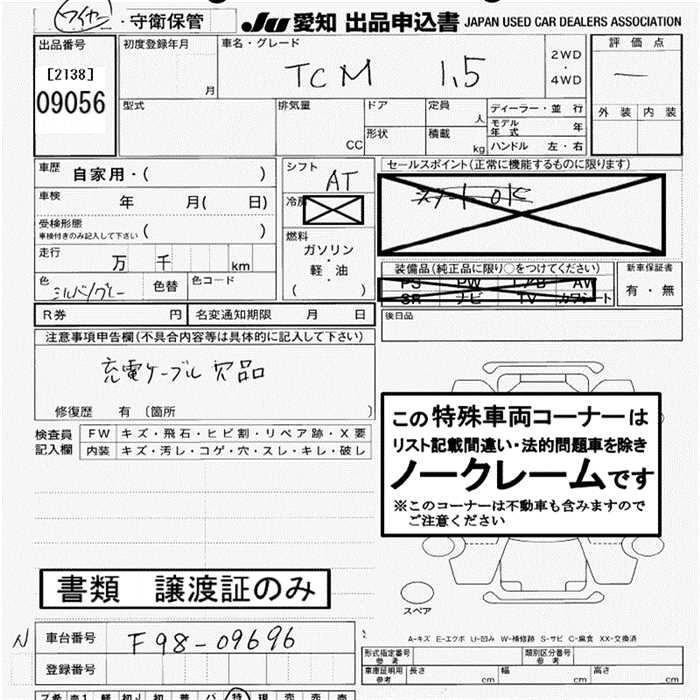 ワイヤー・守衛保管
JU 愛知 出品申込書 JAPAN USED CAR DEALERS ASSOCIATION
出品番号
[2138]
09056
初度登録年月
月
車名・グレード
TCM 1,5
2WD
・
4WD
評価点
―
外装 内装
型式
排気量
CC
ドア
形状
定員
人
積載
kg
ディーラー・並行
モデル年式 年
ハンドル 左・右
車歴
自家用・( )
車検
年 月( 日)
受検形態
車検付きのみ記入して下さい ( )
走行
万 千 km
色
シルバ/グレー
色替
色コード
シフト
AT
冷房
燃料
ガソリン
・
軽・油
( )
セールスポイント(正常に機能するものに限ります)
スタートOK
装備品(純正品に限り○をつけてください)
PS PW エアB AW
SR ナビ TV カワシート
新車保証書
有・無
後日品
R券 円
名変通知期限 月 日
注意事項申告欄(不具合内容等は具体的に記入して下さい)
充電ケーブル欠品
修復歴 有 〔箇所 〕
検査員記入欄
FW キズ・飛石・ヒビ割・リペア跡・X要
内装 キズ・汚レ・コゲ・穴・スレ・キレ・破し
この特殊車両コーナーは
リスト記載間違い・法的問題車を除き
ノークレームです
※このコーナーは不動車も含みますので
ご注意ください
書類 譲渡証のみ
スペア
A-キズ E-エクボ U-凹み W-補修跡 S-サビ C-腐食 XX-交換済
N
車台番号
F98-09696
登録番号
型式指定番号
参考
類別区分番号
参考
車庫証明用
参考
長さ cm
幅 cm
高さ cm